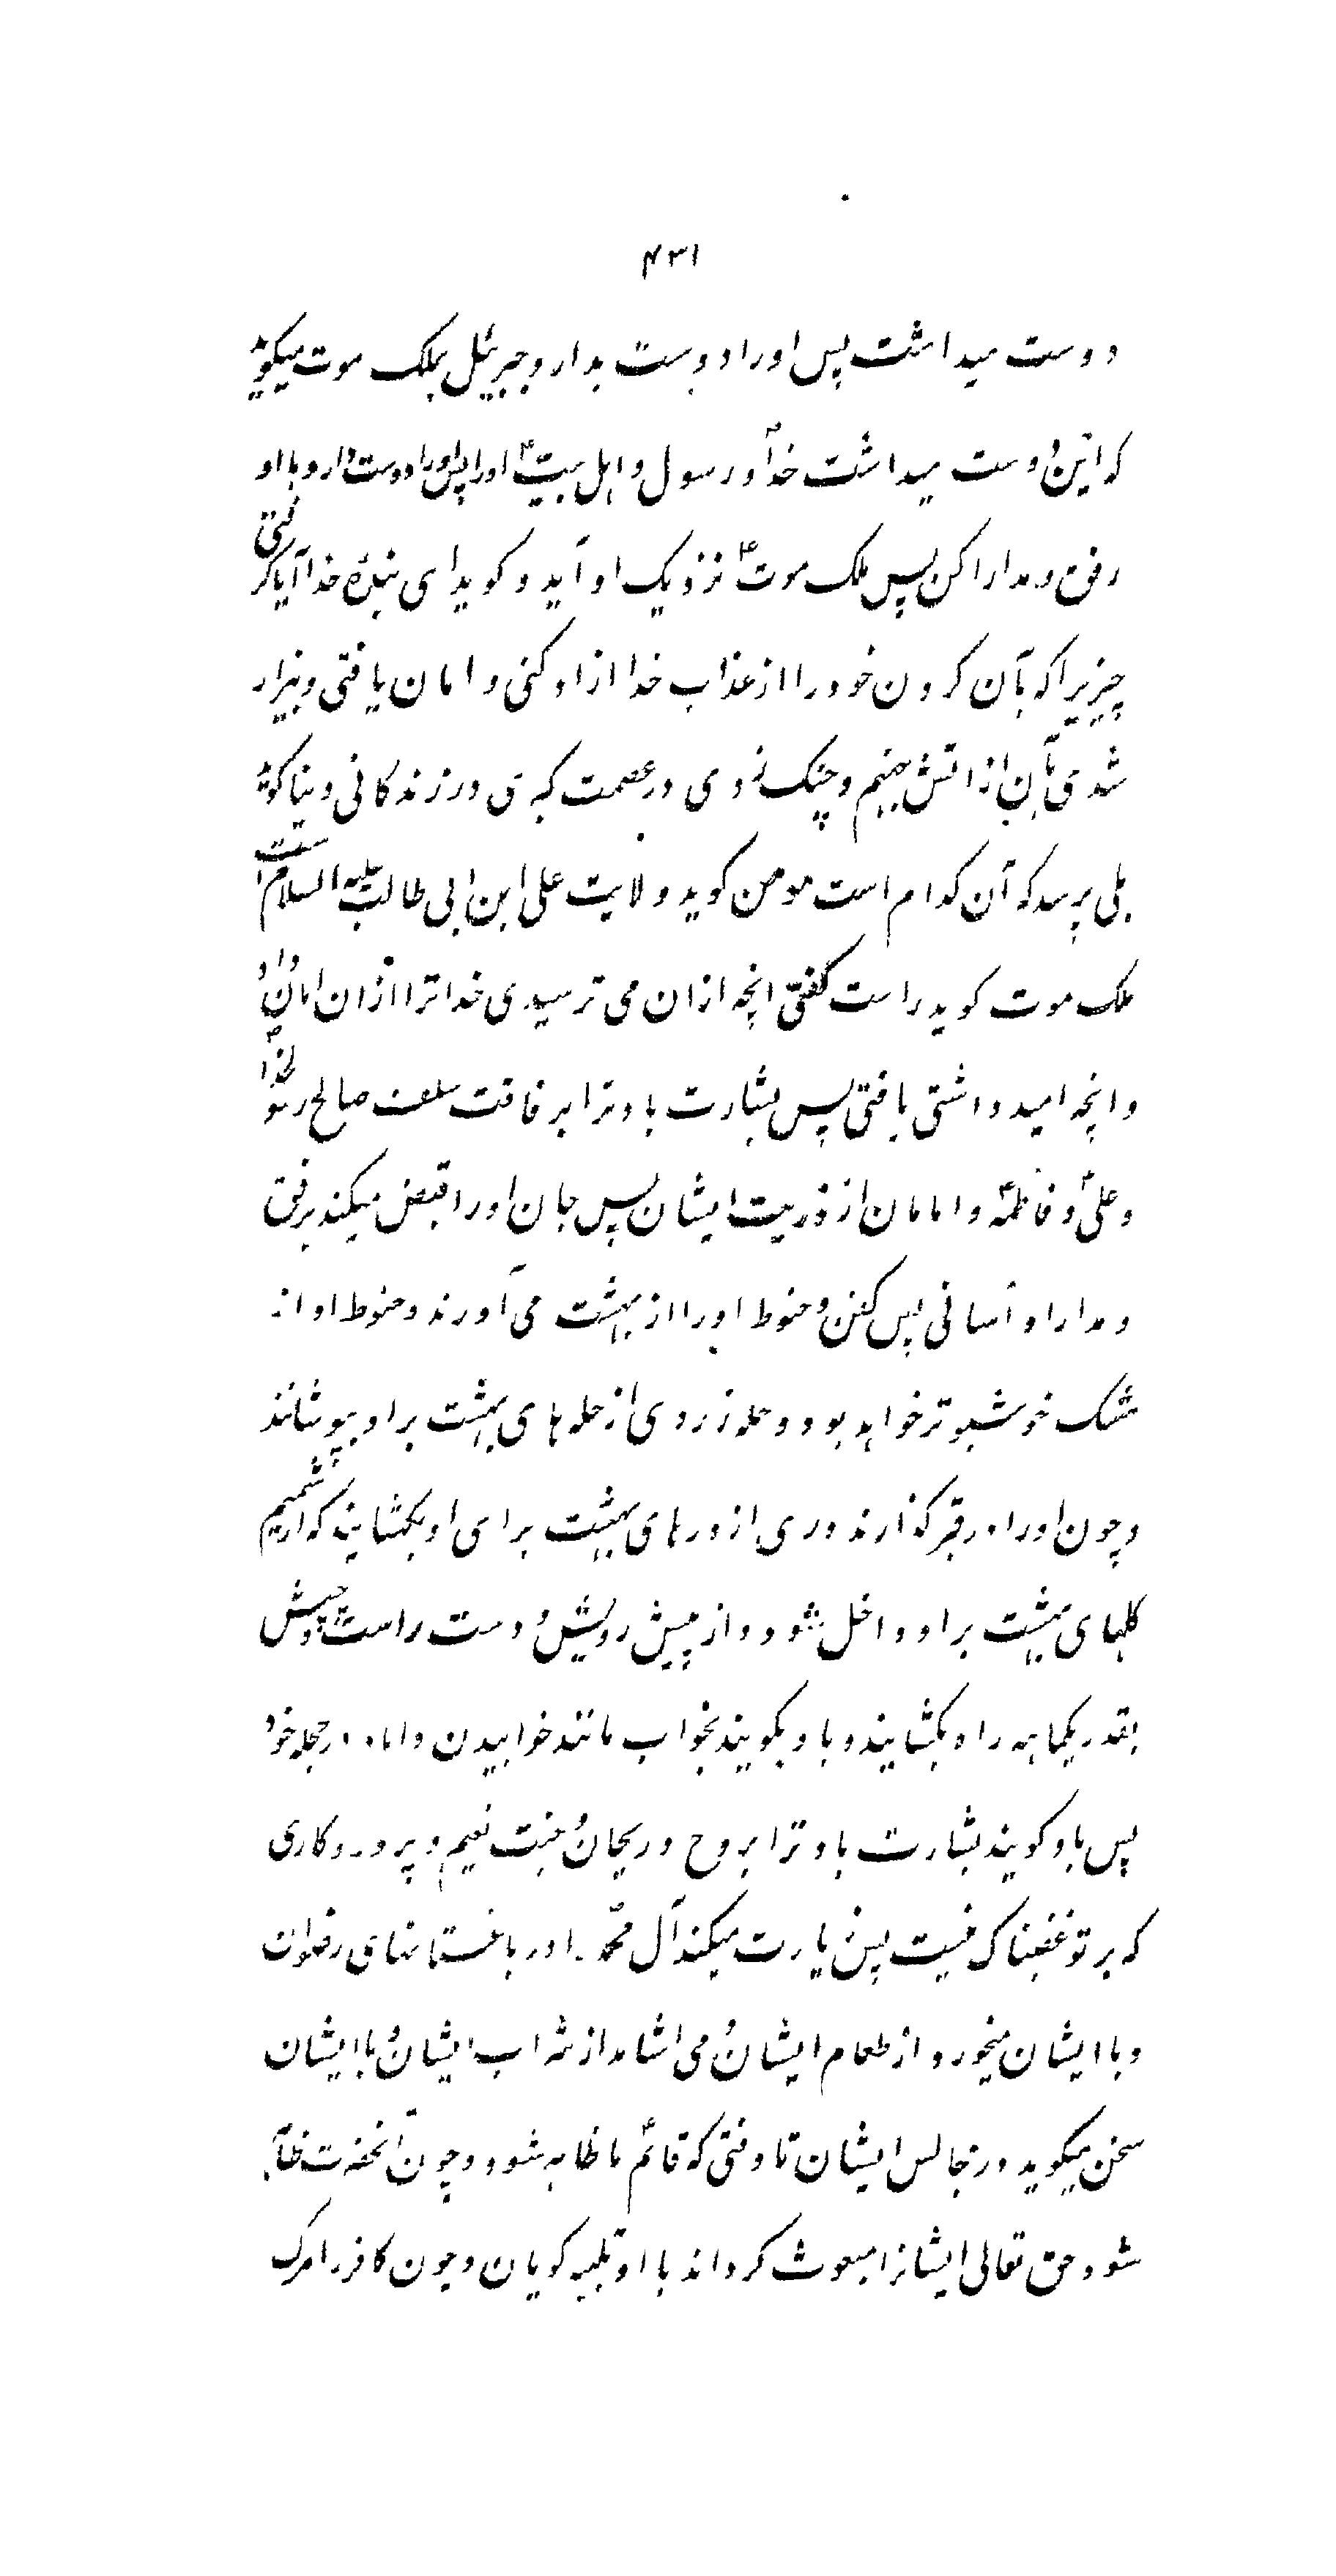 ۴۳۱
دوست میداشت پس اورا دوست بدار و جبرئیل بملک موت میکوید
که این دوست میداشت خدا و رسول و اهل بیت اورا پس اورا دوست دار و با او
رفق و مدارا کن پس ملک موت نزدیک او آید و کوید ای بندهٔ خدا آیا گرفتی
چیزیرا که بآن کردن خود را از عذاب خدا ازاد کنی و امان یافتی و بیزار
شدی بآن از اتش جهنم و چنک زدی در عصمت کبری در زندکانی دنیا کوید
بلی پرسد که آن کدام است مومن کوید ولایت علی ابن ابی طالب علیه السلام است
ملک موت کوید راست کفتی انچه ازان می ترسیدی خدا ترا ازان امان داد
و انچه امید داشتی یافتی پس بشارت باد ترا برفاقت سلف صالح رسولخدا
و علی و فاطمه و امامان از ذریت ایشان پس جان اورا قبض میکند برفق
و مدارا و آسانی پس کفن و حنوط اورا از بهشت می آورند و حنوط او از
مشک خوشبوتر خواهد بود و حله زردی از حله های بهشت براو بپوشانند
و چون اورا در قبر کذارند دری از درهای بهشت برای او بکشایند که از شمیم
کلهای بهشت براو داخل شود و از پیش رویش و دست راست و چپش
بقدر یکماهه راه بکشایند و باو بکویند بخواب مانند خوابیدن داماد در حجله خود
پس باو کویند بشارت باد ترا بروح و ریحان و جنت نعیم و پروردکاری
که بر تو غضبناک نیست پس زیارت میکند آل محمد را در باغستانهای رضوان
و با ایشان میخورد از طعام ایشان و می اشامد از شراب ایشان و با ایشان
سخن میکوید در مجالس ایشان تا وقتی که قائم ما ظاهر شود و چون آنحضرت ظاهر
شود حق تعالی ایشانرا مبعوث کرداند با او تلبیه کویان و چون کافر را مرک